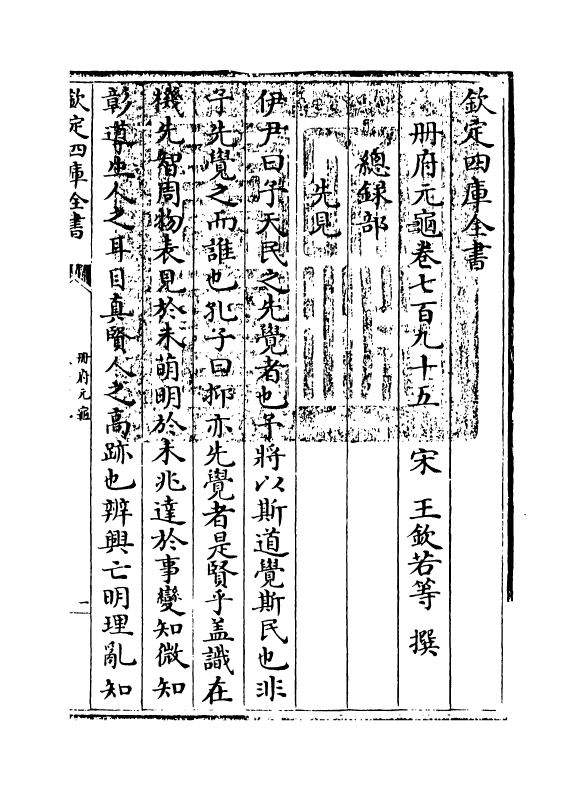 欽定四庫全書
冊府元龜卷七百九十五　宋　王欽若等　撰
總錄部
先見
伊尹曰予天民之先覺者也予將以斯道覺斯民也非
予先覺之而誰也孔子曰抑亦先覺者是賢乎盖識在
機先智周物表見於未萌明於未兆達於事變知微知
彰導生人之耳目真賢人之高跡也辨興亡明理亂知
欽定四庫全書
冊府元龜
一